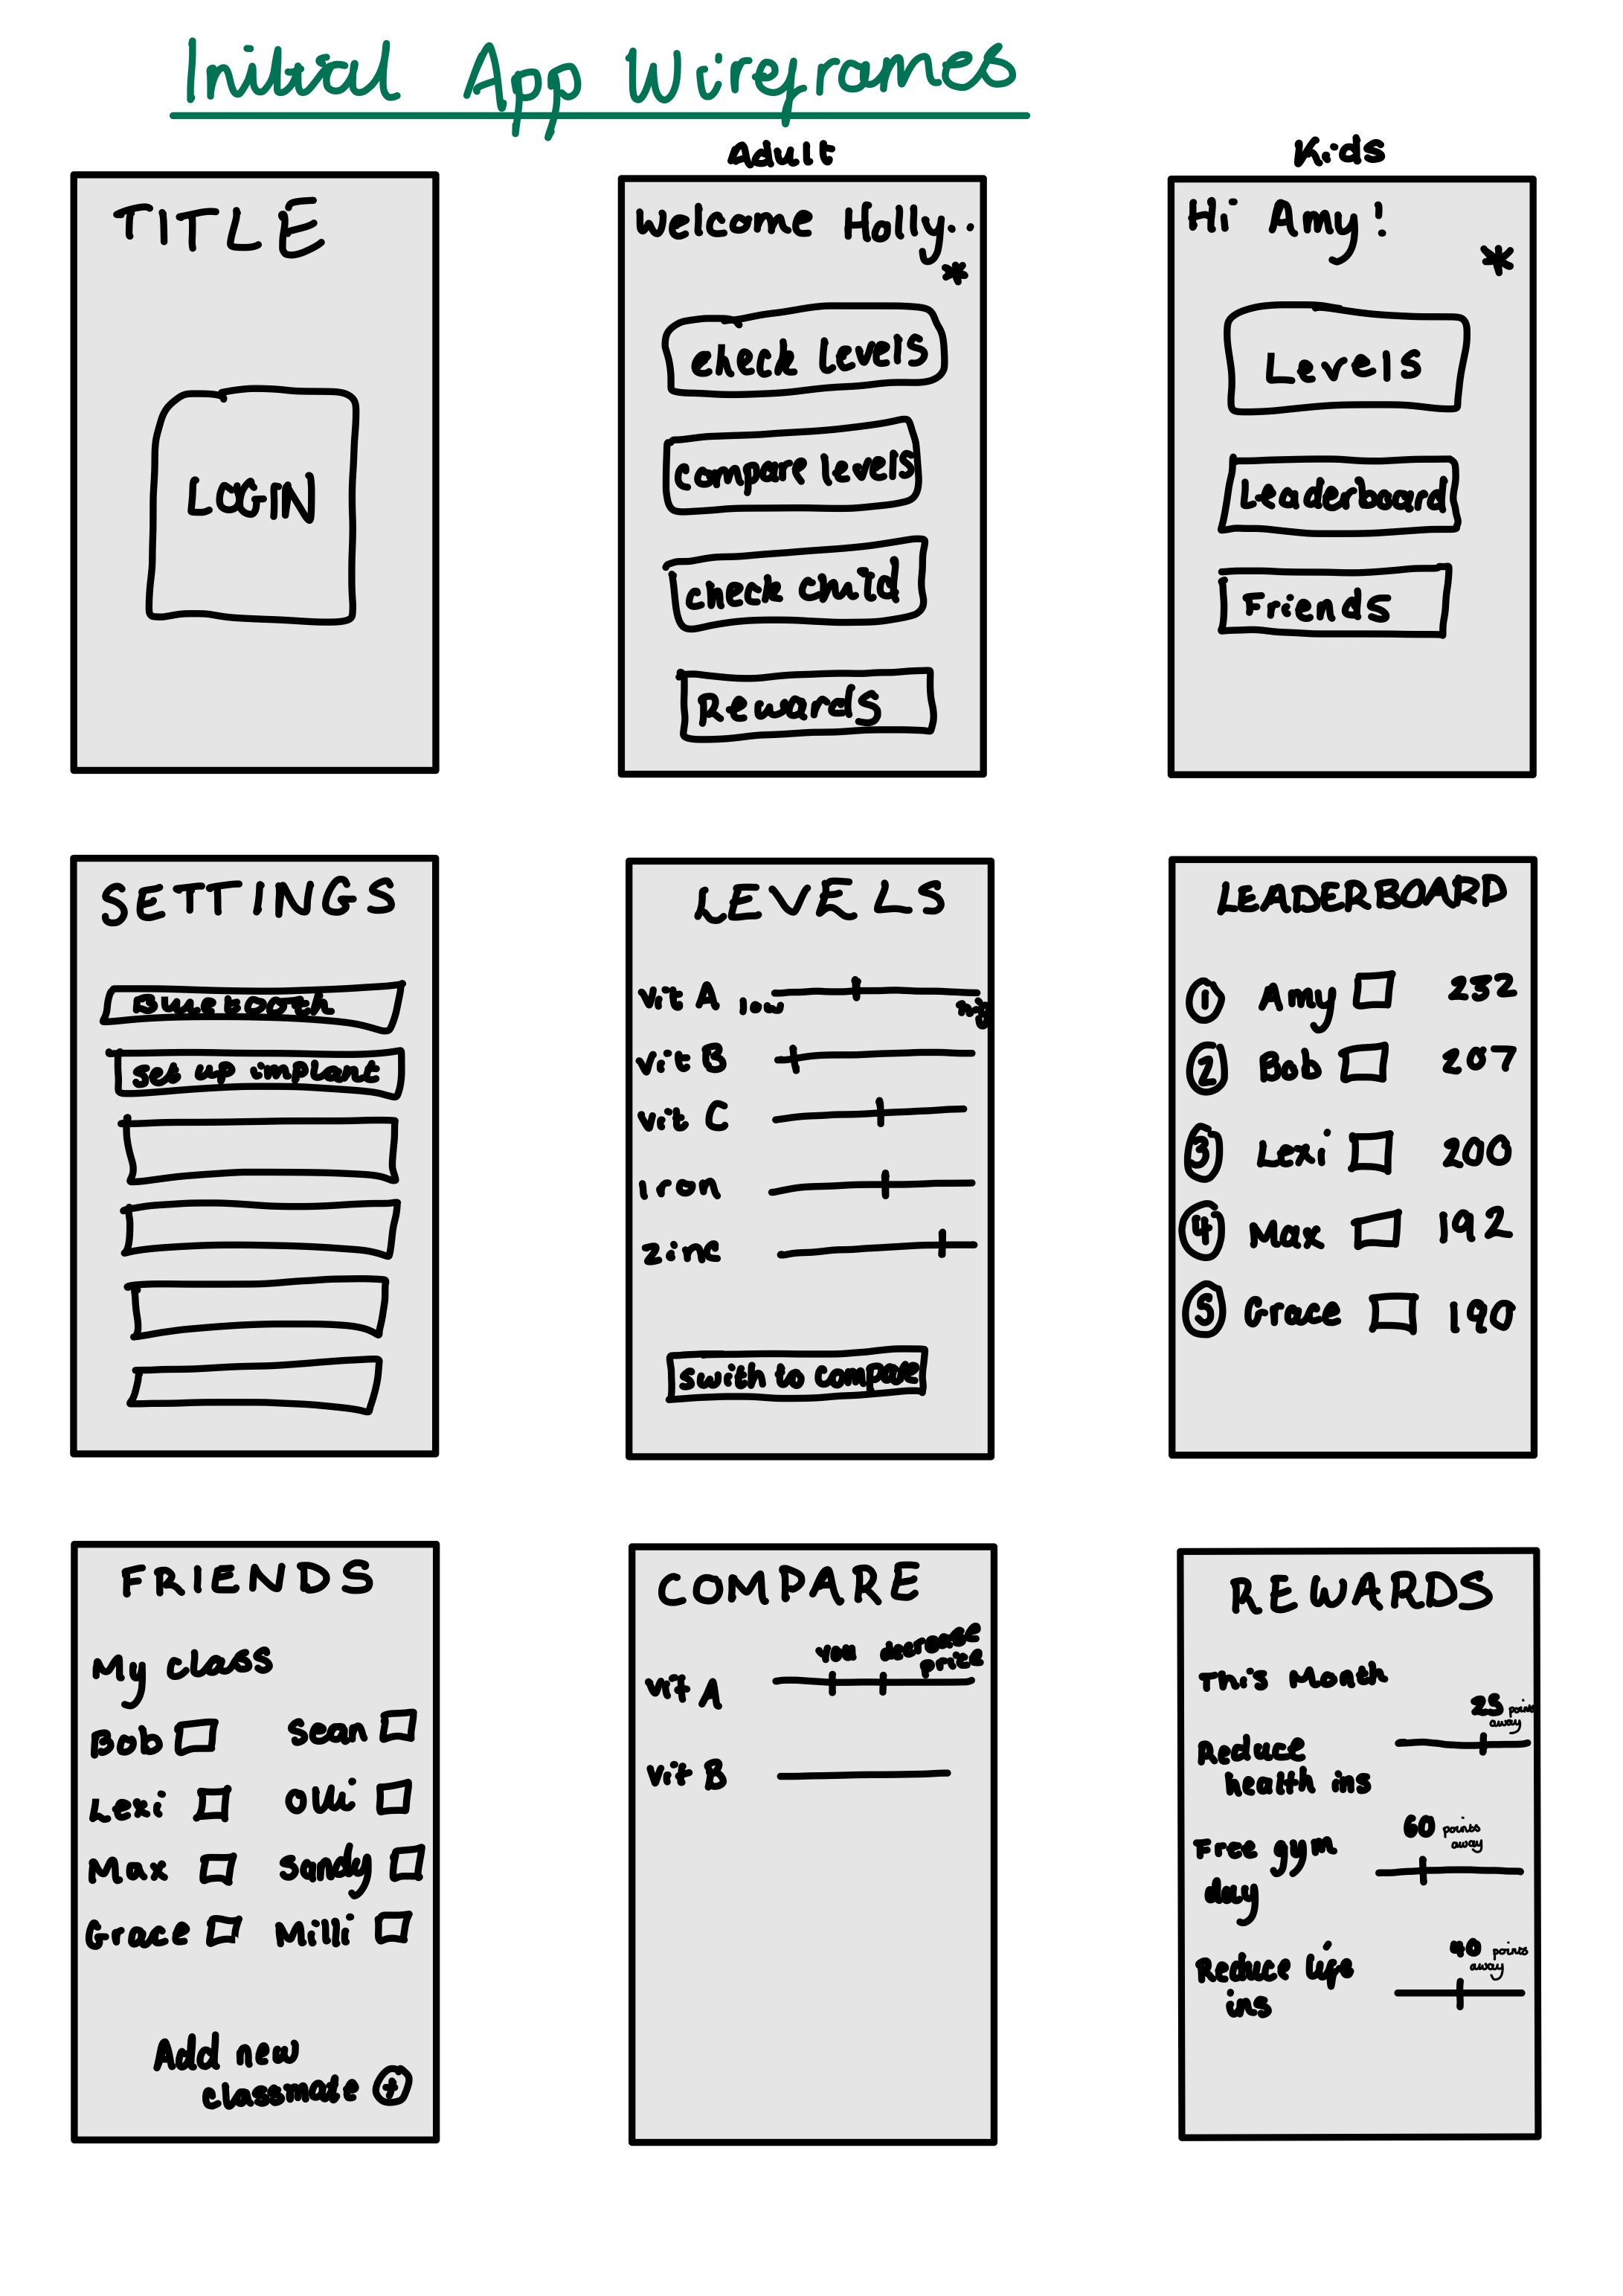 Initial App Wireframes
TITLE
LOGIN
Adult
Welcome Holly..
*
check levels
compare levels
check child
Rewards
Kids
Hi Amy!
*
Levels
Leaderboard
Friends
SETTINGS
Bluetooth
set up implant
LEVELS
vit A low
vit B
vit C
iron
zinc
swith to compare
LEADERBOARD
1 Amy 232
2 Bob 207
3 Lexi 200
4 Max 192
5 Grace 190
FRIENDS
My class
Bob Sean
Lexi Olli
Max Sandy
Grace Milli
Add new
classmate +
COMPARE
You decrease
price
vit A
vit B
REWARDS
This Month
25 points
away
Reduce
health ins
60 points
away
Free gym
day
40 points
away
Reduce life
ins